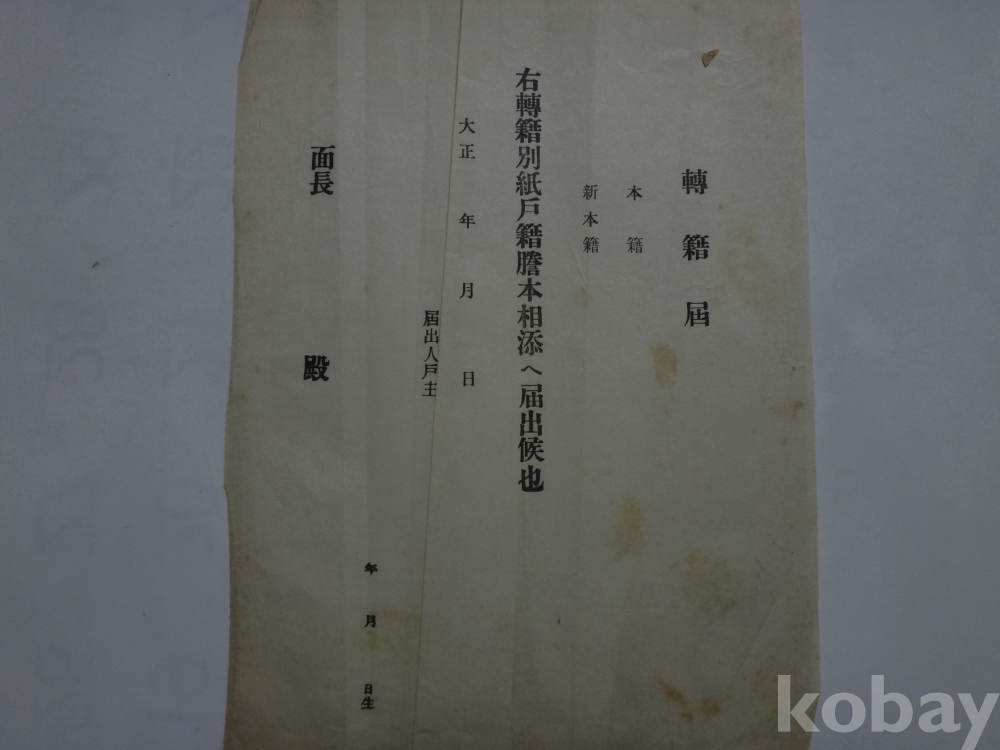 轉籍屆
本籍
新本籍
右轉籍別紙戶籍謄本相添ヘ届出候也
大正 年 月 日
屆出人戶主
年 月 日生
面長 殿
kobay